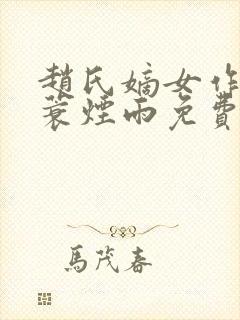 趙氏嫡女作
蓑煙雨免費
馬茂春